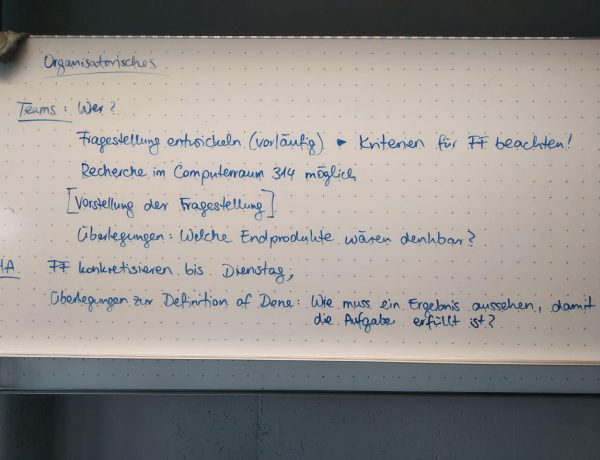 Organisatorisches
Teams: Wer?
Fragestellung entwickeln (vorläufig) ► Kriterien für FF beachten!
Recherche im Computerraum 314 möglich
[Vorstellung der Fragestellung]
Überlegungen: Welche Endprodukte wären denkbar?
HA FF konkretisieren bis Dienstag,
Überlegungen zur Definition of Done: Wie muss ein Ergebnis aussehen, damit
die Aufgabe erfüllt ist?